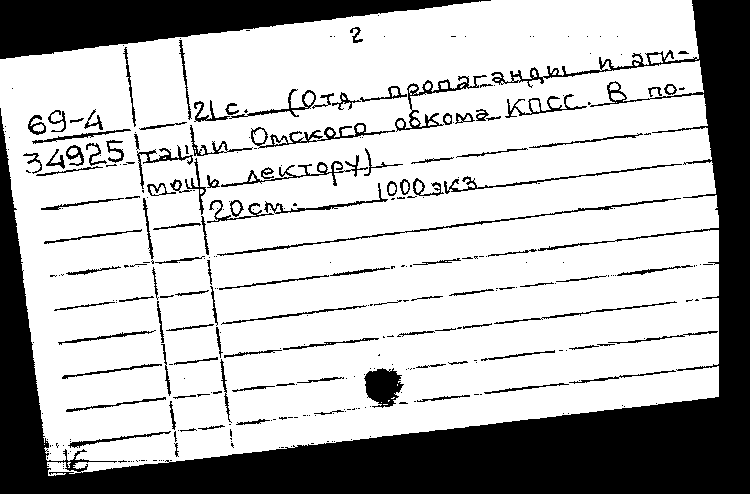 2
69-4
34925
21 с. (Отд. пропаганды и аги-
тации Омского обкома КПСС. В по-
мощь лектору).
20 см. 1000 экз.
16